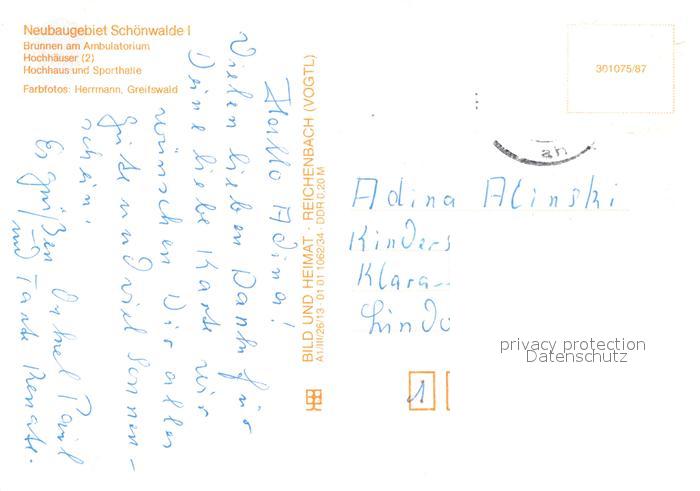 Neubaugebiet Schönwalde I
Brunnen am Ambulatorium
Hochhäuser (2)
Hochhaus und Sporthalle
Farbfotos: Herrmann, Greifswald
Hallo Adina!
Vielen lieben Dank für
Deine liebe Karte wir
wünschen Dir alles
gute und viel Sonnen-
schein!
Es grüßen Onkel Paul
und Tante Renate.
BILD UND HEIMAT · REICHENBACH (VOGTL)
A1/III/26/13 01 01 1062/34 · DDR 0,20 M
301075/87
an
Adina Alinski
Kinders
Klara-
Lindo
1
privacy protection
Datenschutz